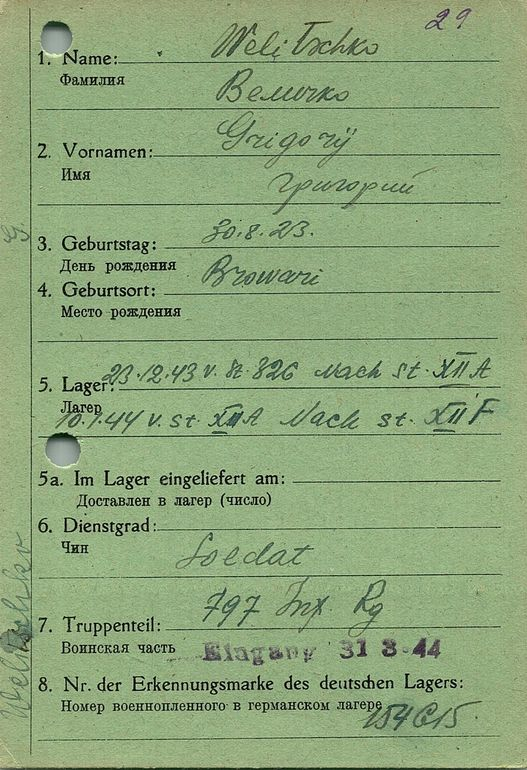 29
1. Name: Welitschko
Фамилия
Величко
2. Vornamen: Grigorÿ
Имя
григорий
3. Geburtstag: 30.8.23.
День рождения
4. Geburtsort: Browari
Место рождения
5. Lager: 23.12.43 v. St. 326 Nach St. XII A
Лагерь
10.1.44 v. St. XII A Nach St. XII F
5a. Im Lager eingeliefert am:
Доставлен в лагер (число)
6. Dienstgrad:
Чин
Soldat
7. Truppenteil: 797 Inf. Rg
Воинская часть
Eingang 31 3·44
8. Nr. der Erkennungsmarke des deutschen Lagers:
Номер военнопленного в германском лагере
Welitschko G